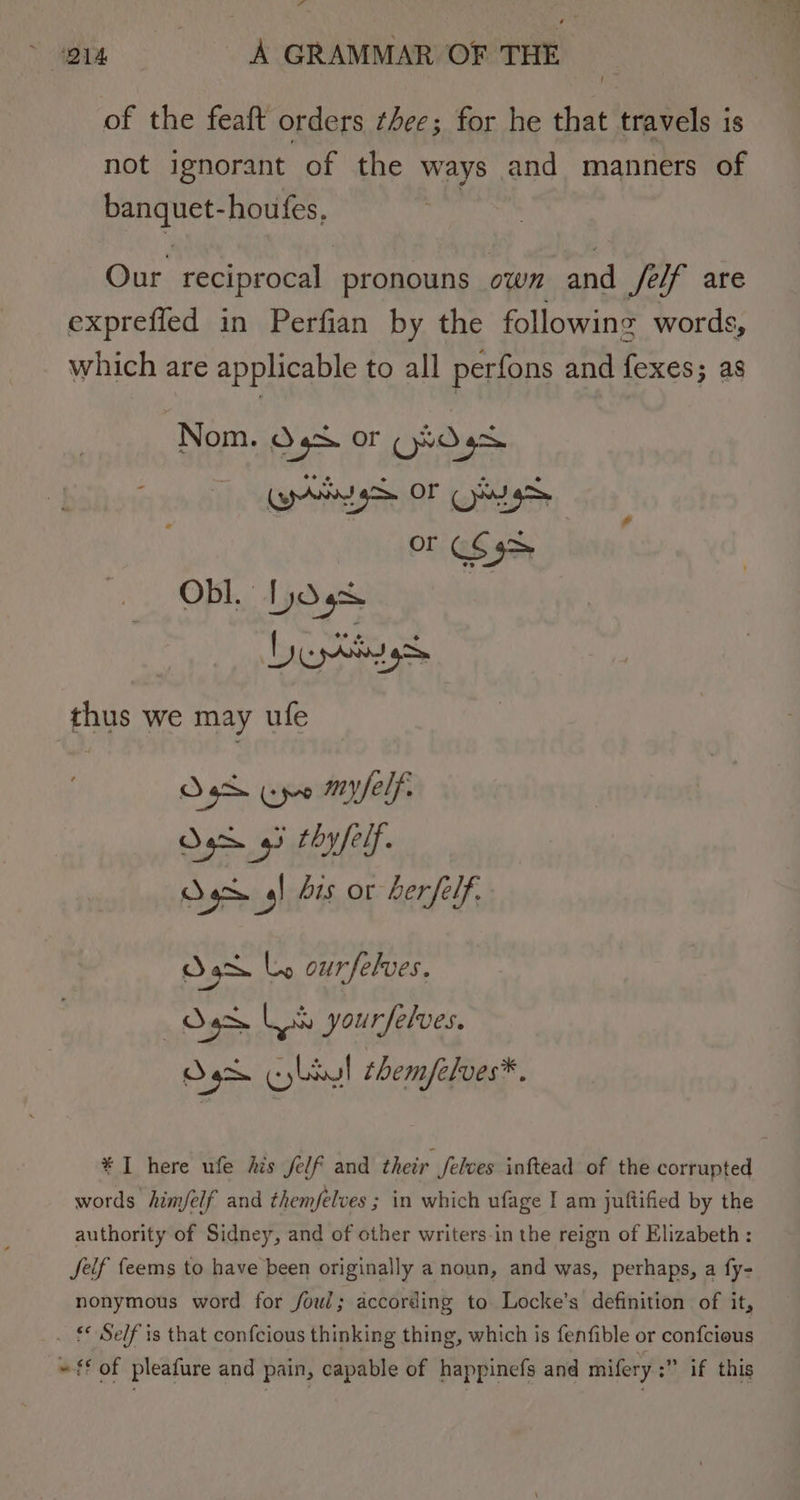 214 A GRAMMAR OF THE
of the feaſt orders thee; for he that travels is
not ignorant of the ways and manners of
banquet-houſes.
Our reciprocal pronouns own and ſelf are
expreſſed in Perſian by the following words,
which are applicable to all perſons and ſexes; as
Nom. خود or خودش
خویش or خویشتن
or خوی
Obl. خودرا
خویشتن را
thus we may uſe
من خود myſelf.
تو خود thyſelf.
او خود his or herſelf.
ما خود ourſelves.
شما خود yourſelves.
ایشان خود themſelves*.
* I here uſe his ſelf and their ſelves inſtead of the corrupted
words himſelf and themſelves; in which uſage I am juſtified by the
authority of Sidney, and of other writers in the reign of Elizabeth:
ſelf ſeems to have been originally a noun, and was, perhaps, a ſy-
nonymous word for ſoul; according to Locke's definition of it,
“ Self is that conſcious thinking thing, which is ſenſible or conſcious
“ of pleaſure and pain, capable of happineſs and miſery:” if this